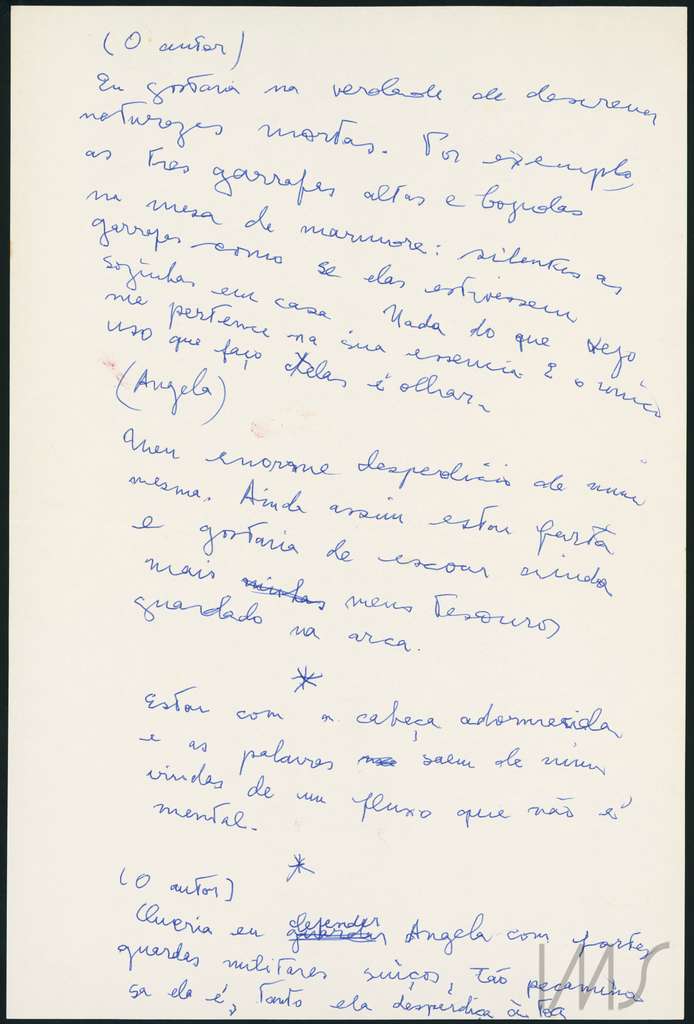 (O autor)
Eu gostaria na verdade de descrever
naturezas mortas. Por exemplo,
as tres garrafas altas e bojudas
na mesa de marmore: silentes as
garrafas como se elas estivessem
sozinhas em casa. Nada do que vejo
me pertence na sua essencia. E o unico
uso que faço delas é olhar.
(Angela)
Meu enorme desperdicio de mim
mesma. Ainda assim estou farta
e gostaria de escoar ainda
mais minhas meus tesouros
guardado na arca.
*
Estou com a cabeça adormecida
e as palavras saem de mim
vindas de um fluxo que não é
mental.
*
(O autor)
Queria eu guardar defender Angela com fortes
guardas militares suiços, tão pecamino
sa ela é, tanto ela desperdiça à toa
IMS